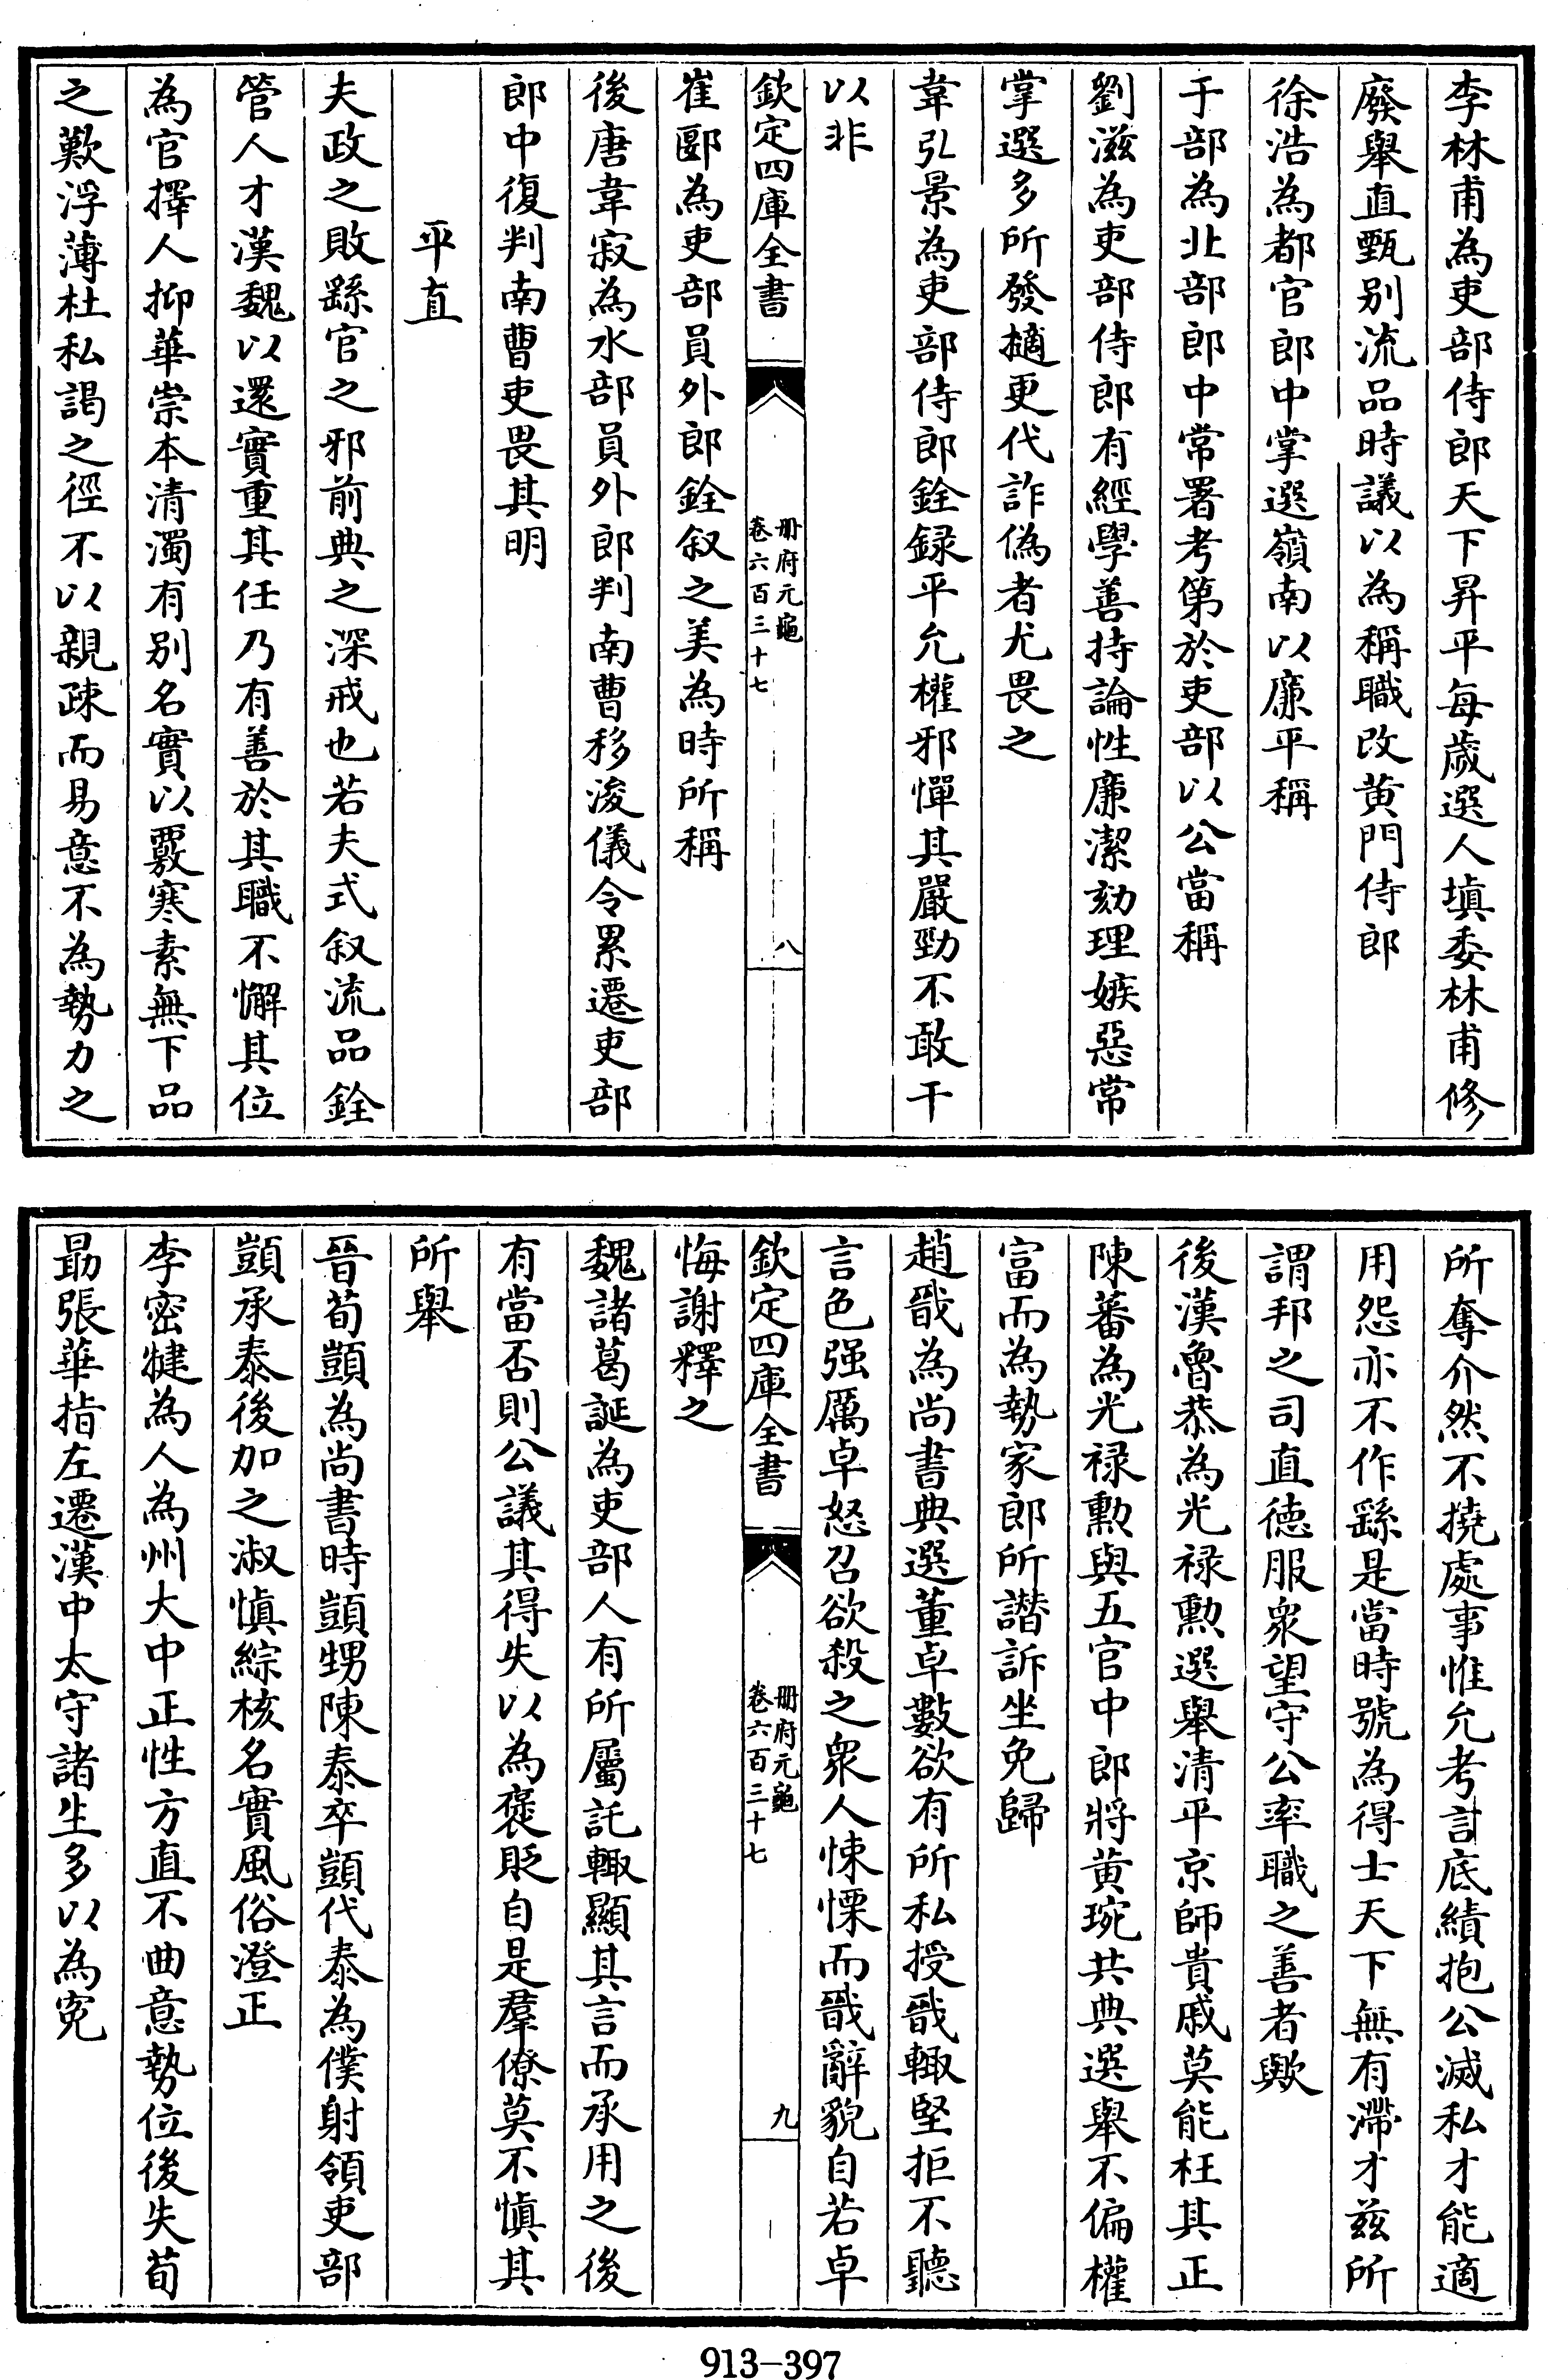 李林甫為吏部侍郎天下昇平每歲選人填委林甫修
廢舉直甄别流品時議以為稱職改黄門侍郎
徐浩為都官郎中掌選嶺南以廉平稱
于部為北部郎中常署考第於吏部以公當稱
劉滋為吏部侍郎有經學善持論性廉潔劾理嫉惡常
掌選多所發擿更代詐偽者尤畏之
韋弘景為吏部侍郎銓録平允權邪憚其嚴勁不敢干
以非
欽定四庫全書
册府元龜
卷六百三十七
八
崔郾為吏部員外郎銓叙之美為時所稱
後唐韋寂為水部員外郎判南曹移浚儀令累遷吏部
郎中復判南曹吏畏其明
平直
夫政之敗繇官之邪前典之深戒也若夫式叙流品銓
管人才漢魏以還實重其任乃有善於其職不懈其位
為官擇人抑華崇本清濁有别名實以覈寒素無下品
之歎浮薄杜私謁之徑不以親疎而易意不為勢力之
所奪介然不撓處事惟允考言底績抱公滅私才能適
用怨亦不作繇是當時號為得士天下無有滯才兹所
謂邦之司直徳服衆望守公率職之善者歟
後漢魯恭為光禄勲選舉清平京師貴戚莫能枉其正
陳蕃為光禄勲與五官中郎將黄琬共典選舉不偏權
富而為勢家郎所譖訴坐免歸
趙戩為尚書典選董卓數欲有所私授戩輙堅拒不聽
言色强厲卓怒召欲殺之衆人悚慄而戩辭貌自若卓
欽定四庫全書
册府元龜
卷六百三十七
九
悔謝釋之
魏諸葛誕為吏部人有所屬託輙顯其言而承用之後
有當否則公議其得失以為褒貶自是羣僚莫不慎其
所舉
晉荀顗為尚書時顗甥陳泰卒顗代泰為僕射領吏部
顗承泰後加之淑慎綜核名實風俗澄正
李密犍為人為州大中正性方直不曲意勢位後失荀
朂張華指左遷漢中太守諸生多以為寃
913-397